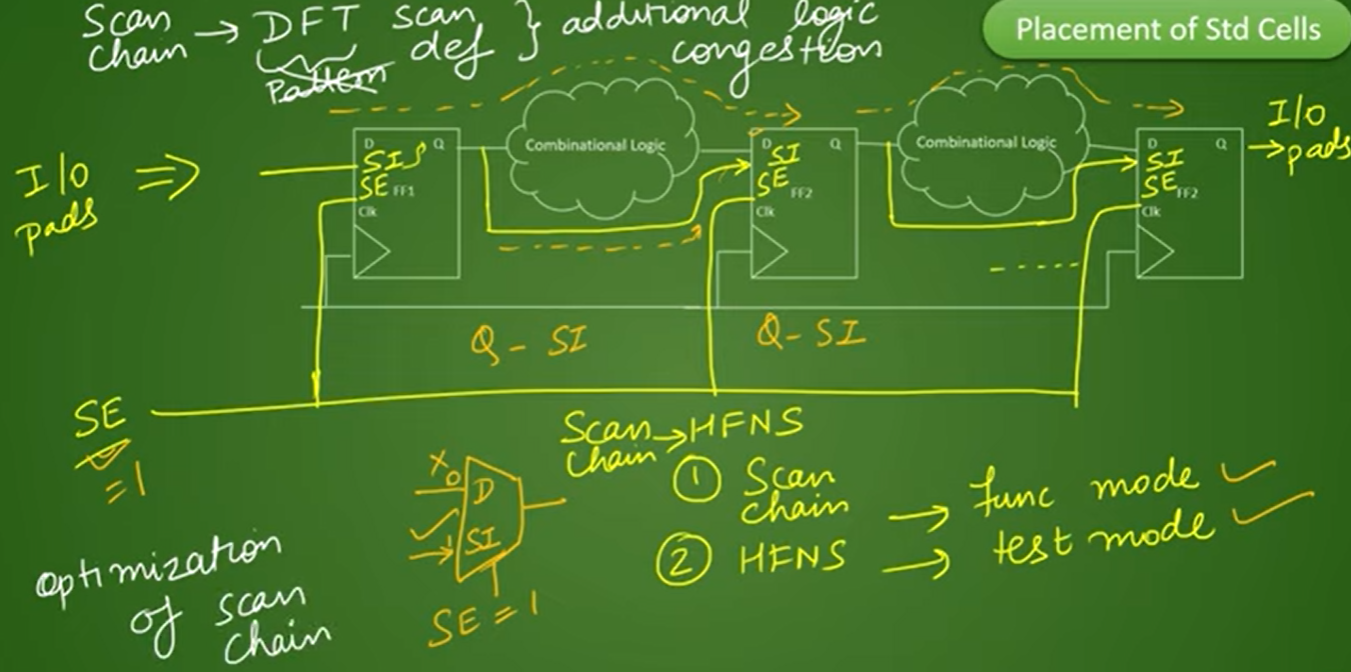 Placement of Std Cells
Scan chain → DFT scan def } additional logic congestion
Pattern
I/O pads ⇒
D Q
SI
SE FF1
Clk
Combinational Logic
D Q
SI
SE FF2
Clk
Combinational Logic
D Q
SI
SE FF2
Clk
→ I/O pads
Q - SI
Q - SI
SE
= 1
Scan chain → HFNS
① Scan chain → func mode ✓
② HFNS → test mode ✓
X 0 D
✓ → 1 SI
SE = 1
optimization
of scan
chain